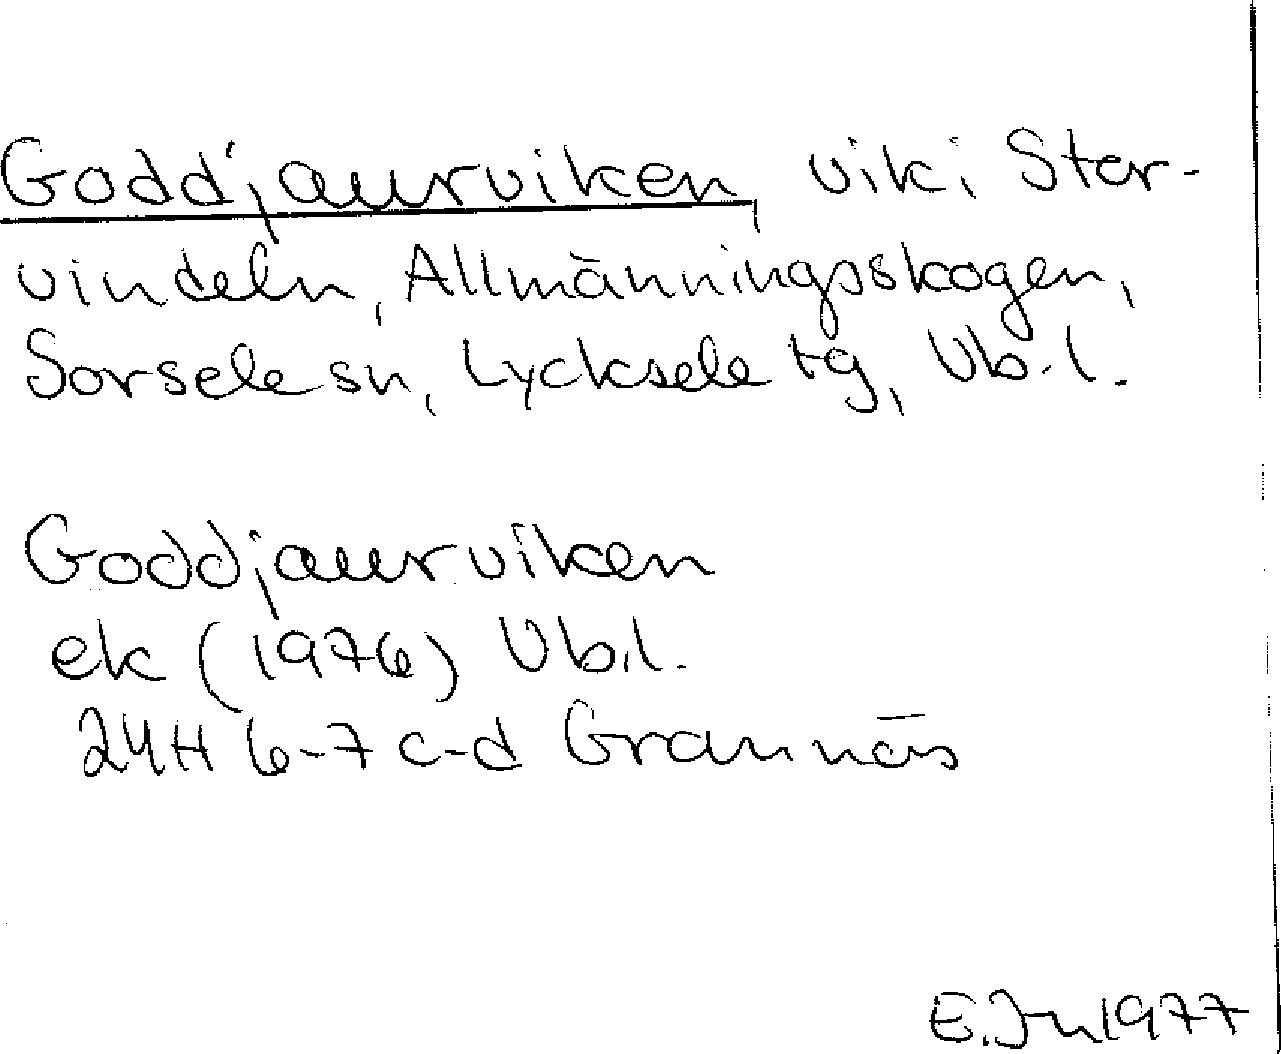 Goddjaurviken, vik i Stor-
vindeln, Allmänningsskogen,
Sorsele sn, Lycksele tg, Vb.l.
Goddjaurviken
ek (1976) Vb.l.
24H 6-7 c-d Grannäs
E.Jn 1977